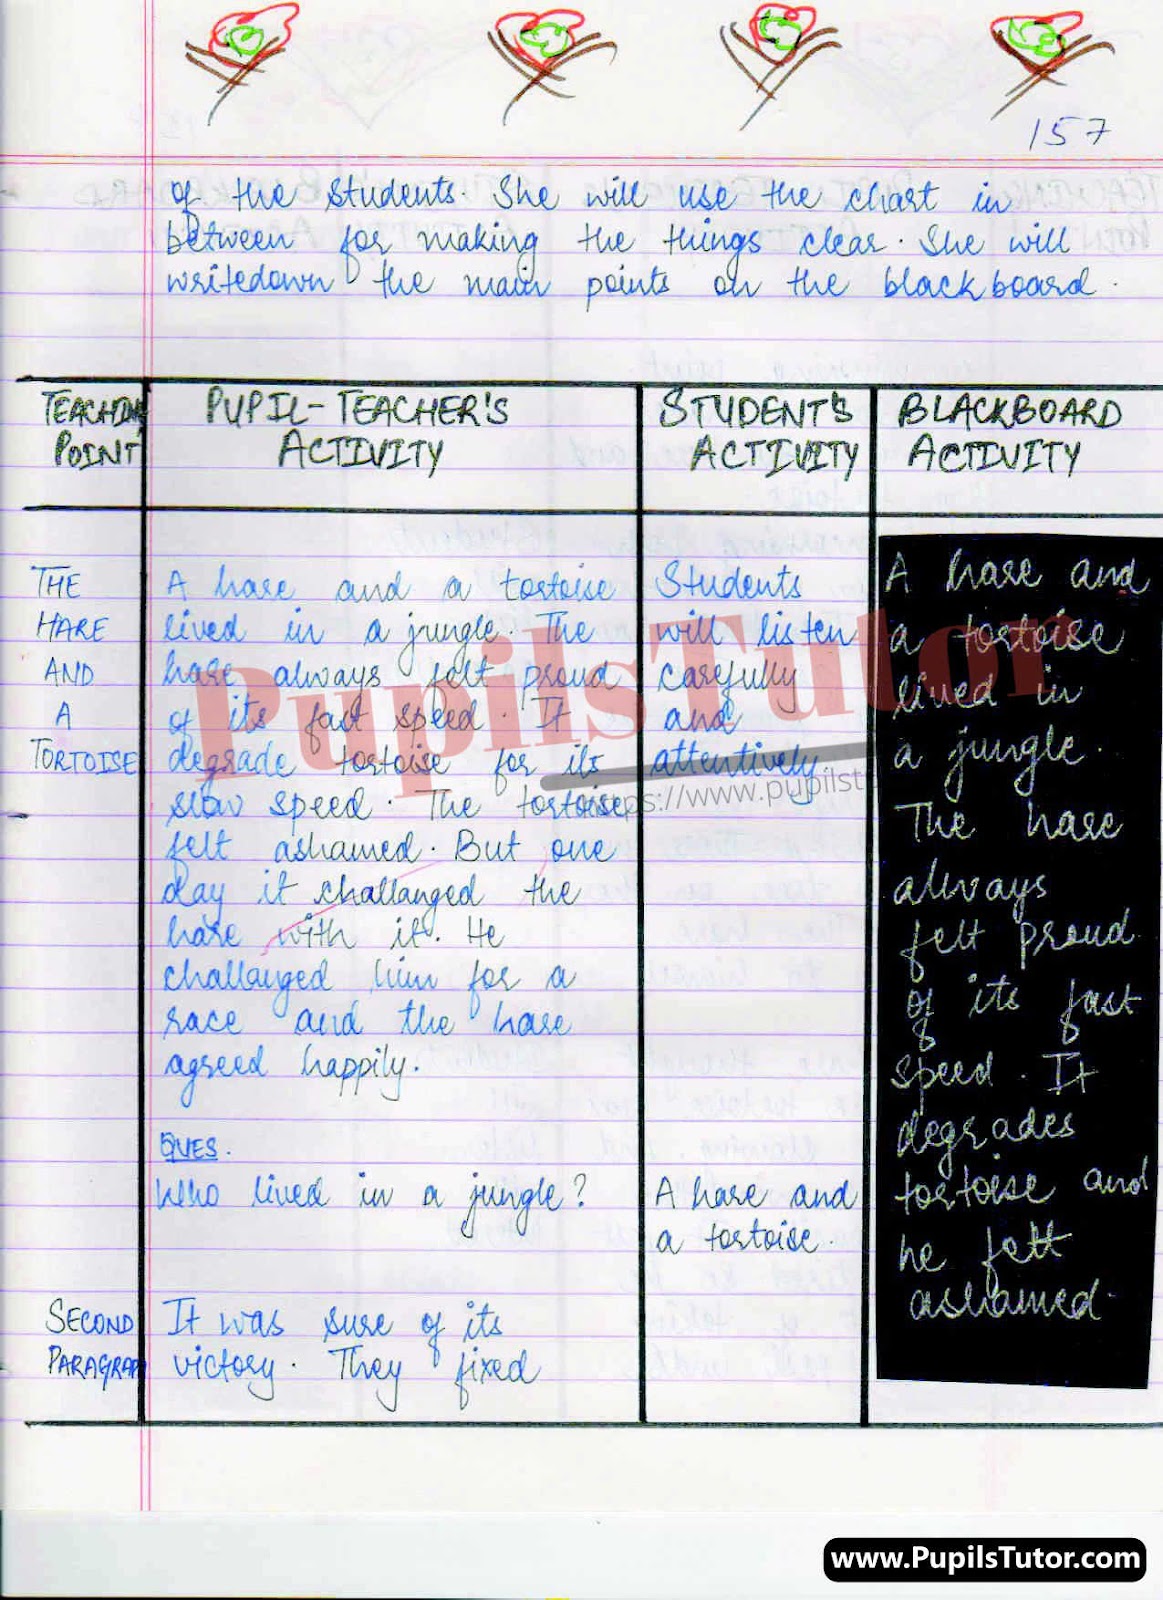 157
of the students. She will use the chart in
between for making the things clear. She will
writedown the main points on the blackboard.
TEACHING
POINT
PUPIL-TEACHER'S
ACTIVITY
STUDENT'S
ACTIVITY
BLACKBOARD
ACTIVITY
THE
HARE
AND
A
TORTOISE
A hare and a tortoise
lived in a jungle. The
hare always felt proud
of its fast speed. It
degrade tortoise for its
slow speed. The tortoise
felt ashamed. But one
day it challanged the
hare with it. He
challanged him for a
race and the hare
agreed happily.
QUES.
Who lived in a jungle?
Students
will listen
carefully
and
attentively
A hare and
a tortoise.
A hare and
a tortoise
lived in
a jungle.
The hare
always
felt proud
of its fast
speed. It
degrades
tortoise and
he felt
ashamed.
SECOND
PARAGRAPH
It was sure of its
victory. They fixed
PupilsTutor
www.PupilsTutor.com